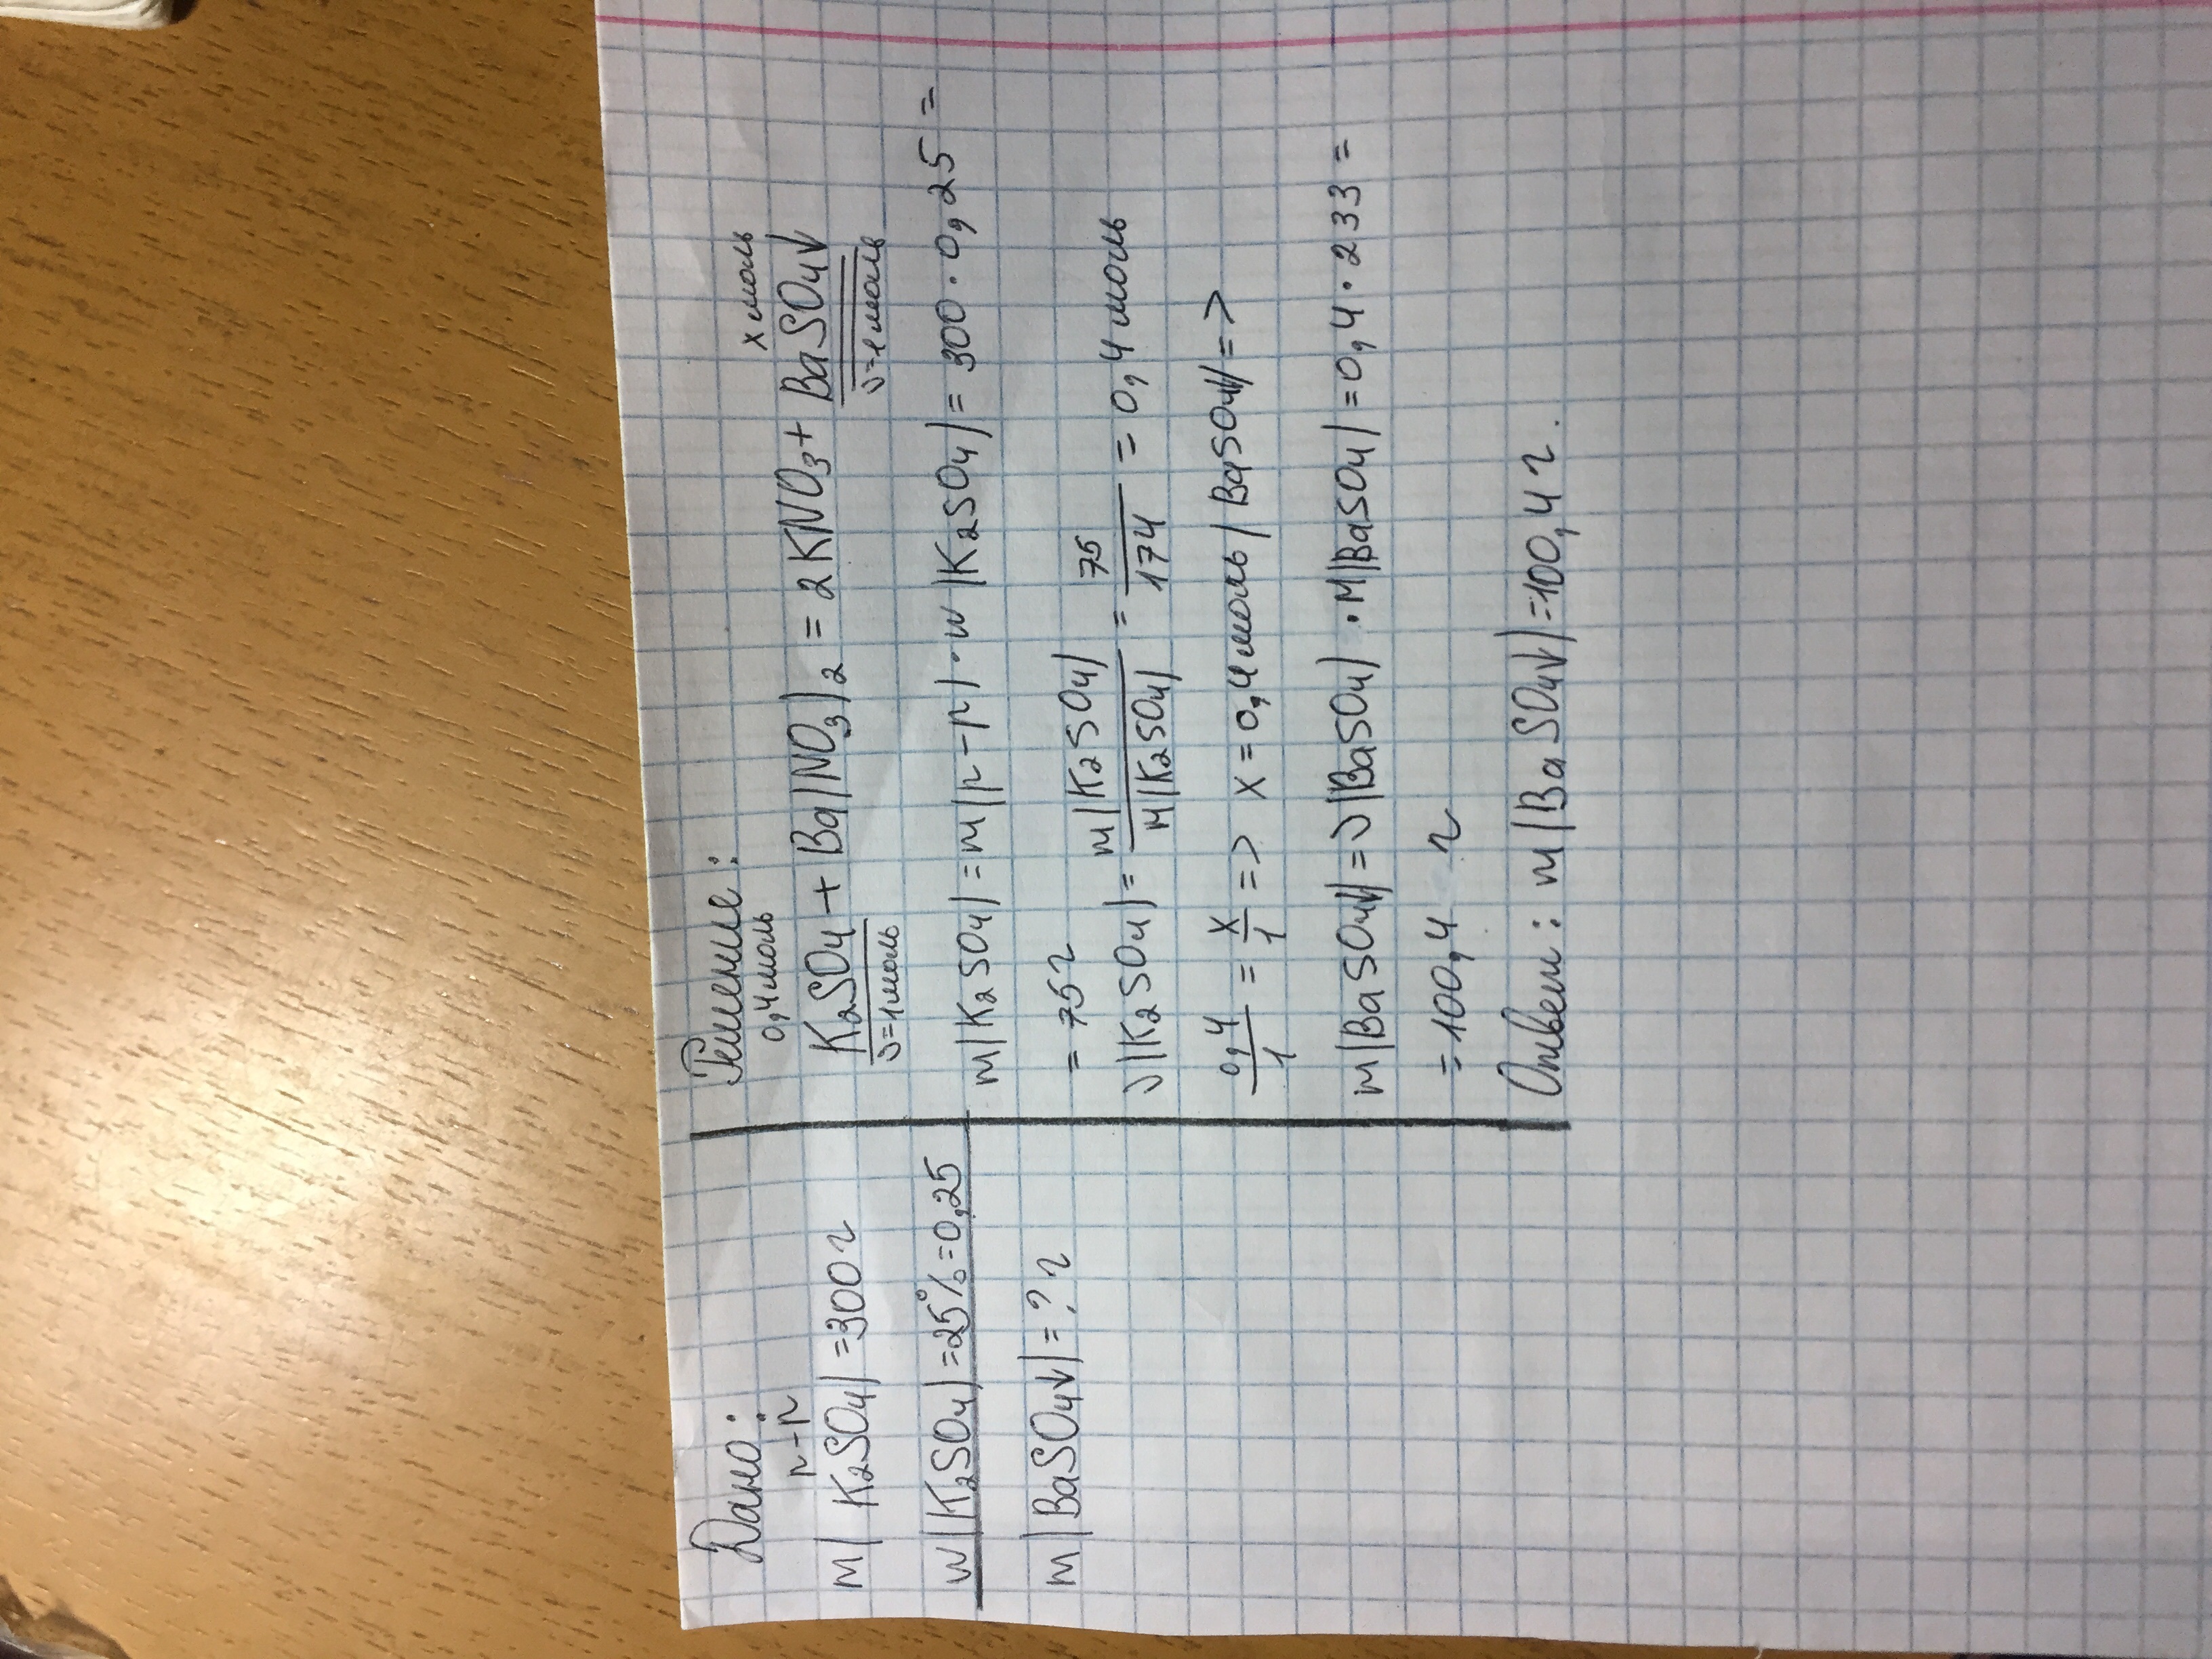 Дано:
р-р
m(K₂SO₄)=300г
w(K₂SO₄)=25%=0,25
m(BaSO₄↓)=? г
Решение:
0,4моль
x моль
K₂SO₄ + Ba(NO₃)₂ = 2KNO₃ + BaSO₄↓
ν=1моль
ν=1моль
m(K₂SO₄)=m(р-р)·w(K₂SO₄)=300·0,25=
=75г
ν(K₂SO₄)=m(K₂SO₄)/M(K₂SO₄)=75/174=0,4моль
0,4/1=x/1=> x=0,4моль(BaSO₄↓)=>
m(BaSO₄↓)=ν(BaSO₄)·M(BaSO₄)=0,4·233=
=100,4 г
Ответ: m(BaSO₄↓)=100,4г.